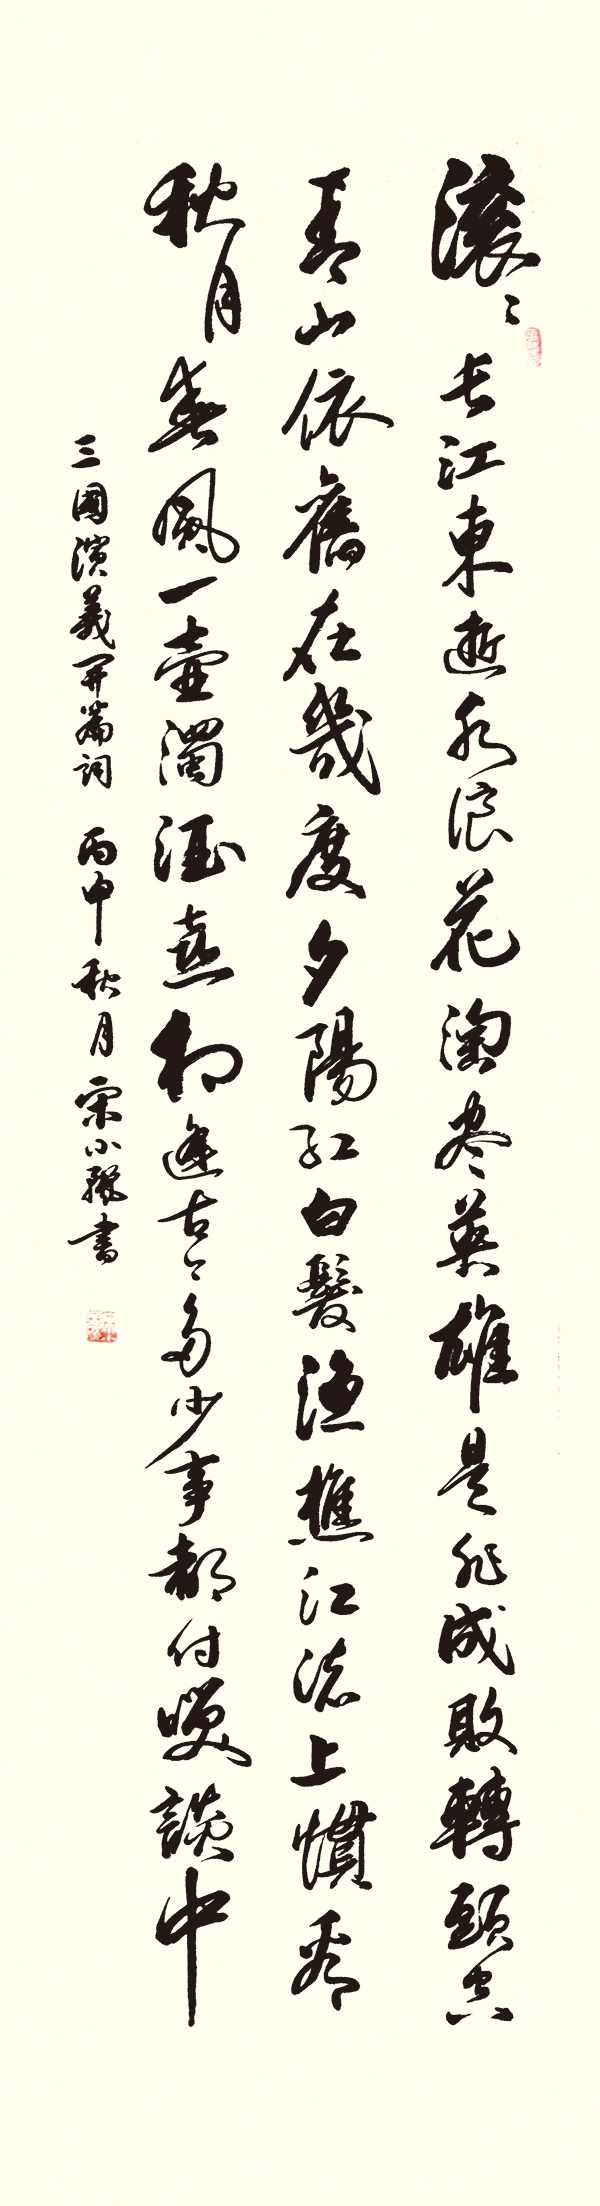 滚〻长江東逝水浪花淘尽英雄是非成敗轉頭空
青山依舊在幾度夕陽紅白髮漁樵江渚上慣看
秋月春風一壺濁酒喜相逢古今多少事都付笑談中
三國演義開篇詞 丙申秋月宋小飛書